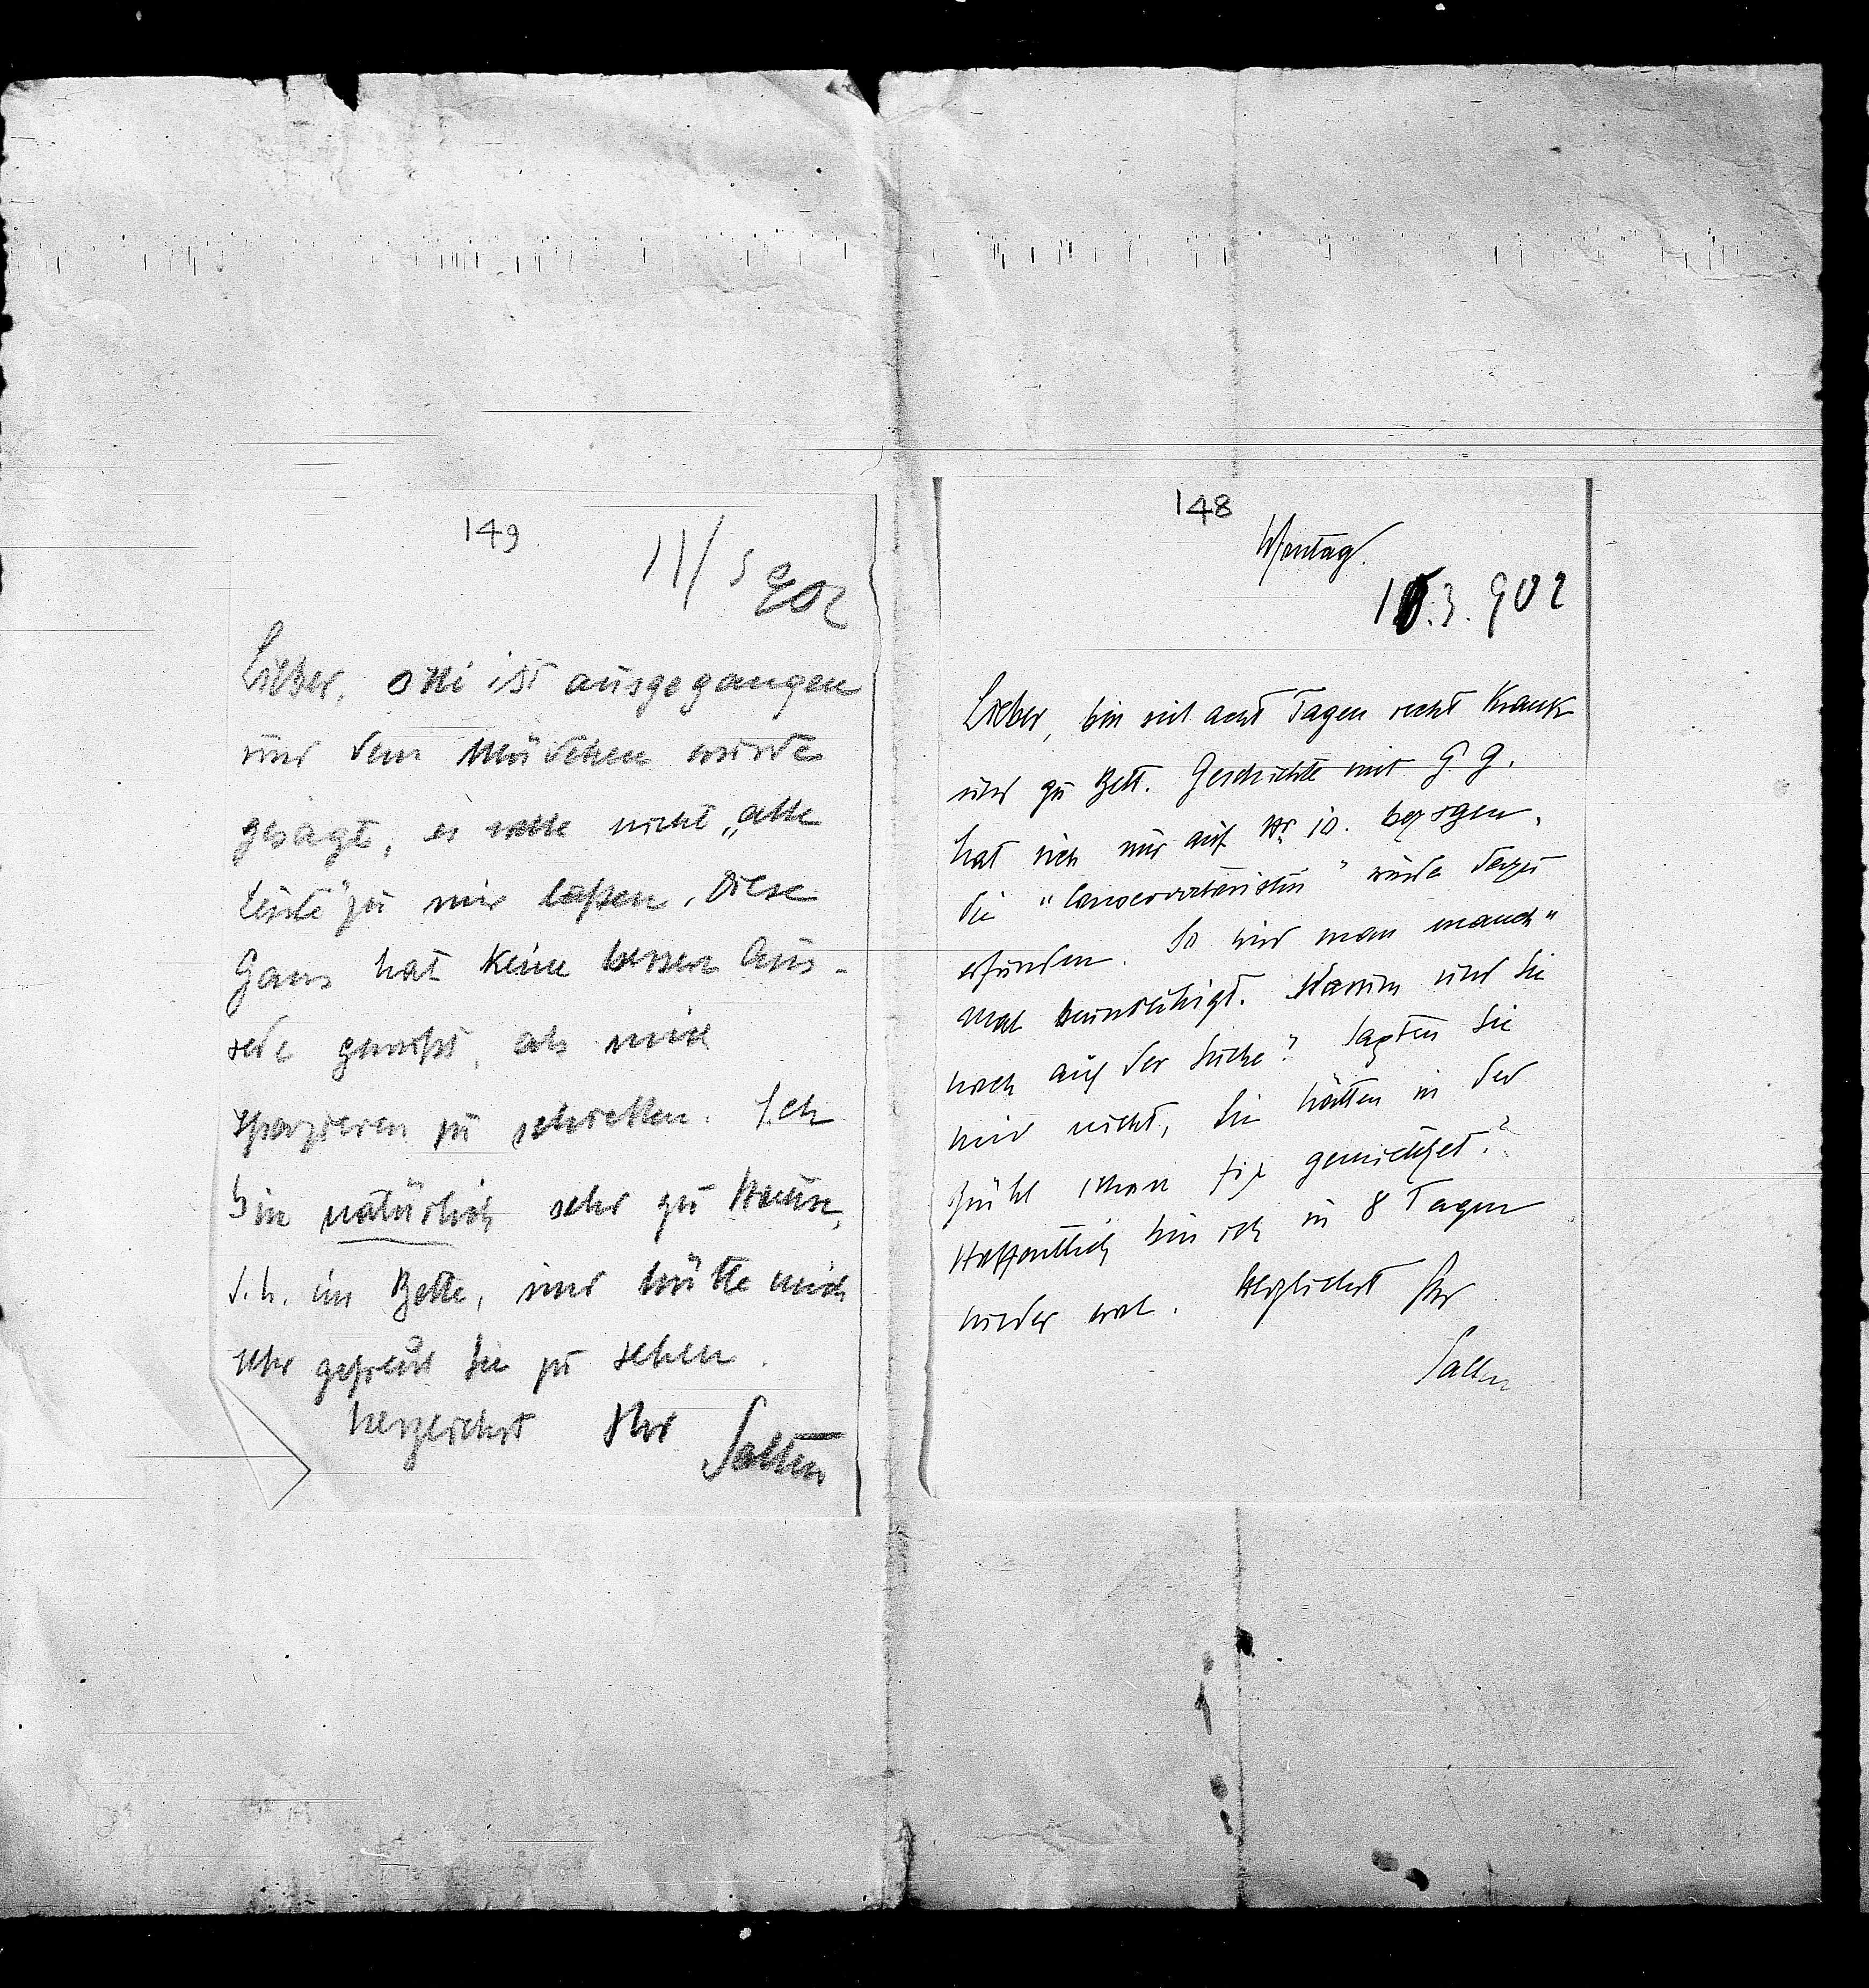 149
11/3 902
Lieber, Otti ist ausgegangen
und dem Mädchen wurde
gesagt, es solle nicht „alle
Leute" zu mir laßen. Diese
Gans hat keine bessere Aus-
rede gewußt, als mich
spazieren zu schicken. Ich
bin natürlich sehr zu Hause,
d. h. im Bette, und hätte mich
sehr gefreut Sie zu sehen.
herzlichst Ihr Salten
148
Montag.
10.3.902
Lieber, bin seit acht Tagen recht krank
und zu Bett. Geschichte mit G. G.
hat sich nur auf Nr 10. bezogen.
die "Conservatoristin" wurde dazu
erfunden. So wird man manch"
mal beunruhigt. Warum sind Sie
noch auf der Suche? Sagten Sie
mir nicht, Sie hätten in der
schon fix gemiethet?
Hoffentlich bin ich in 8 Tagen
wieder wol. Herzlichst Ihr
Salten